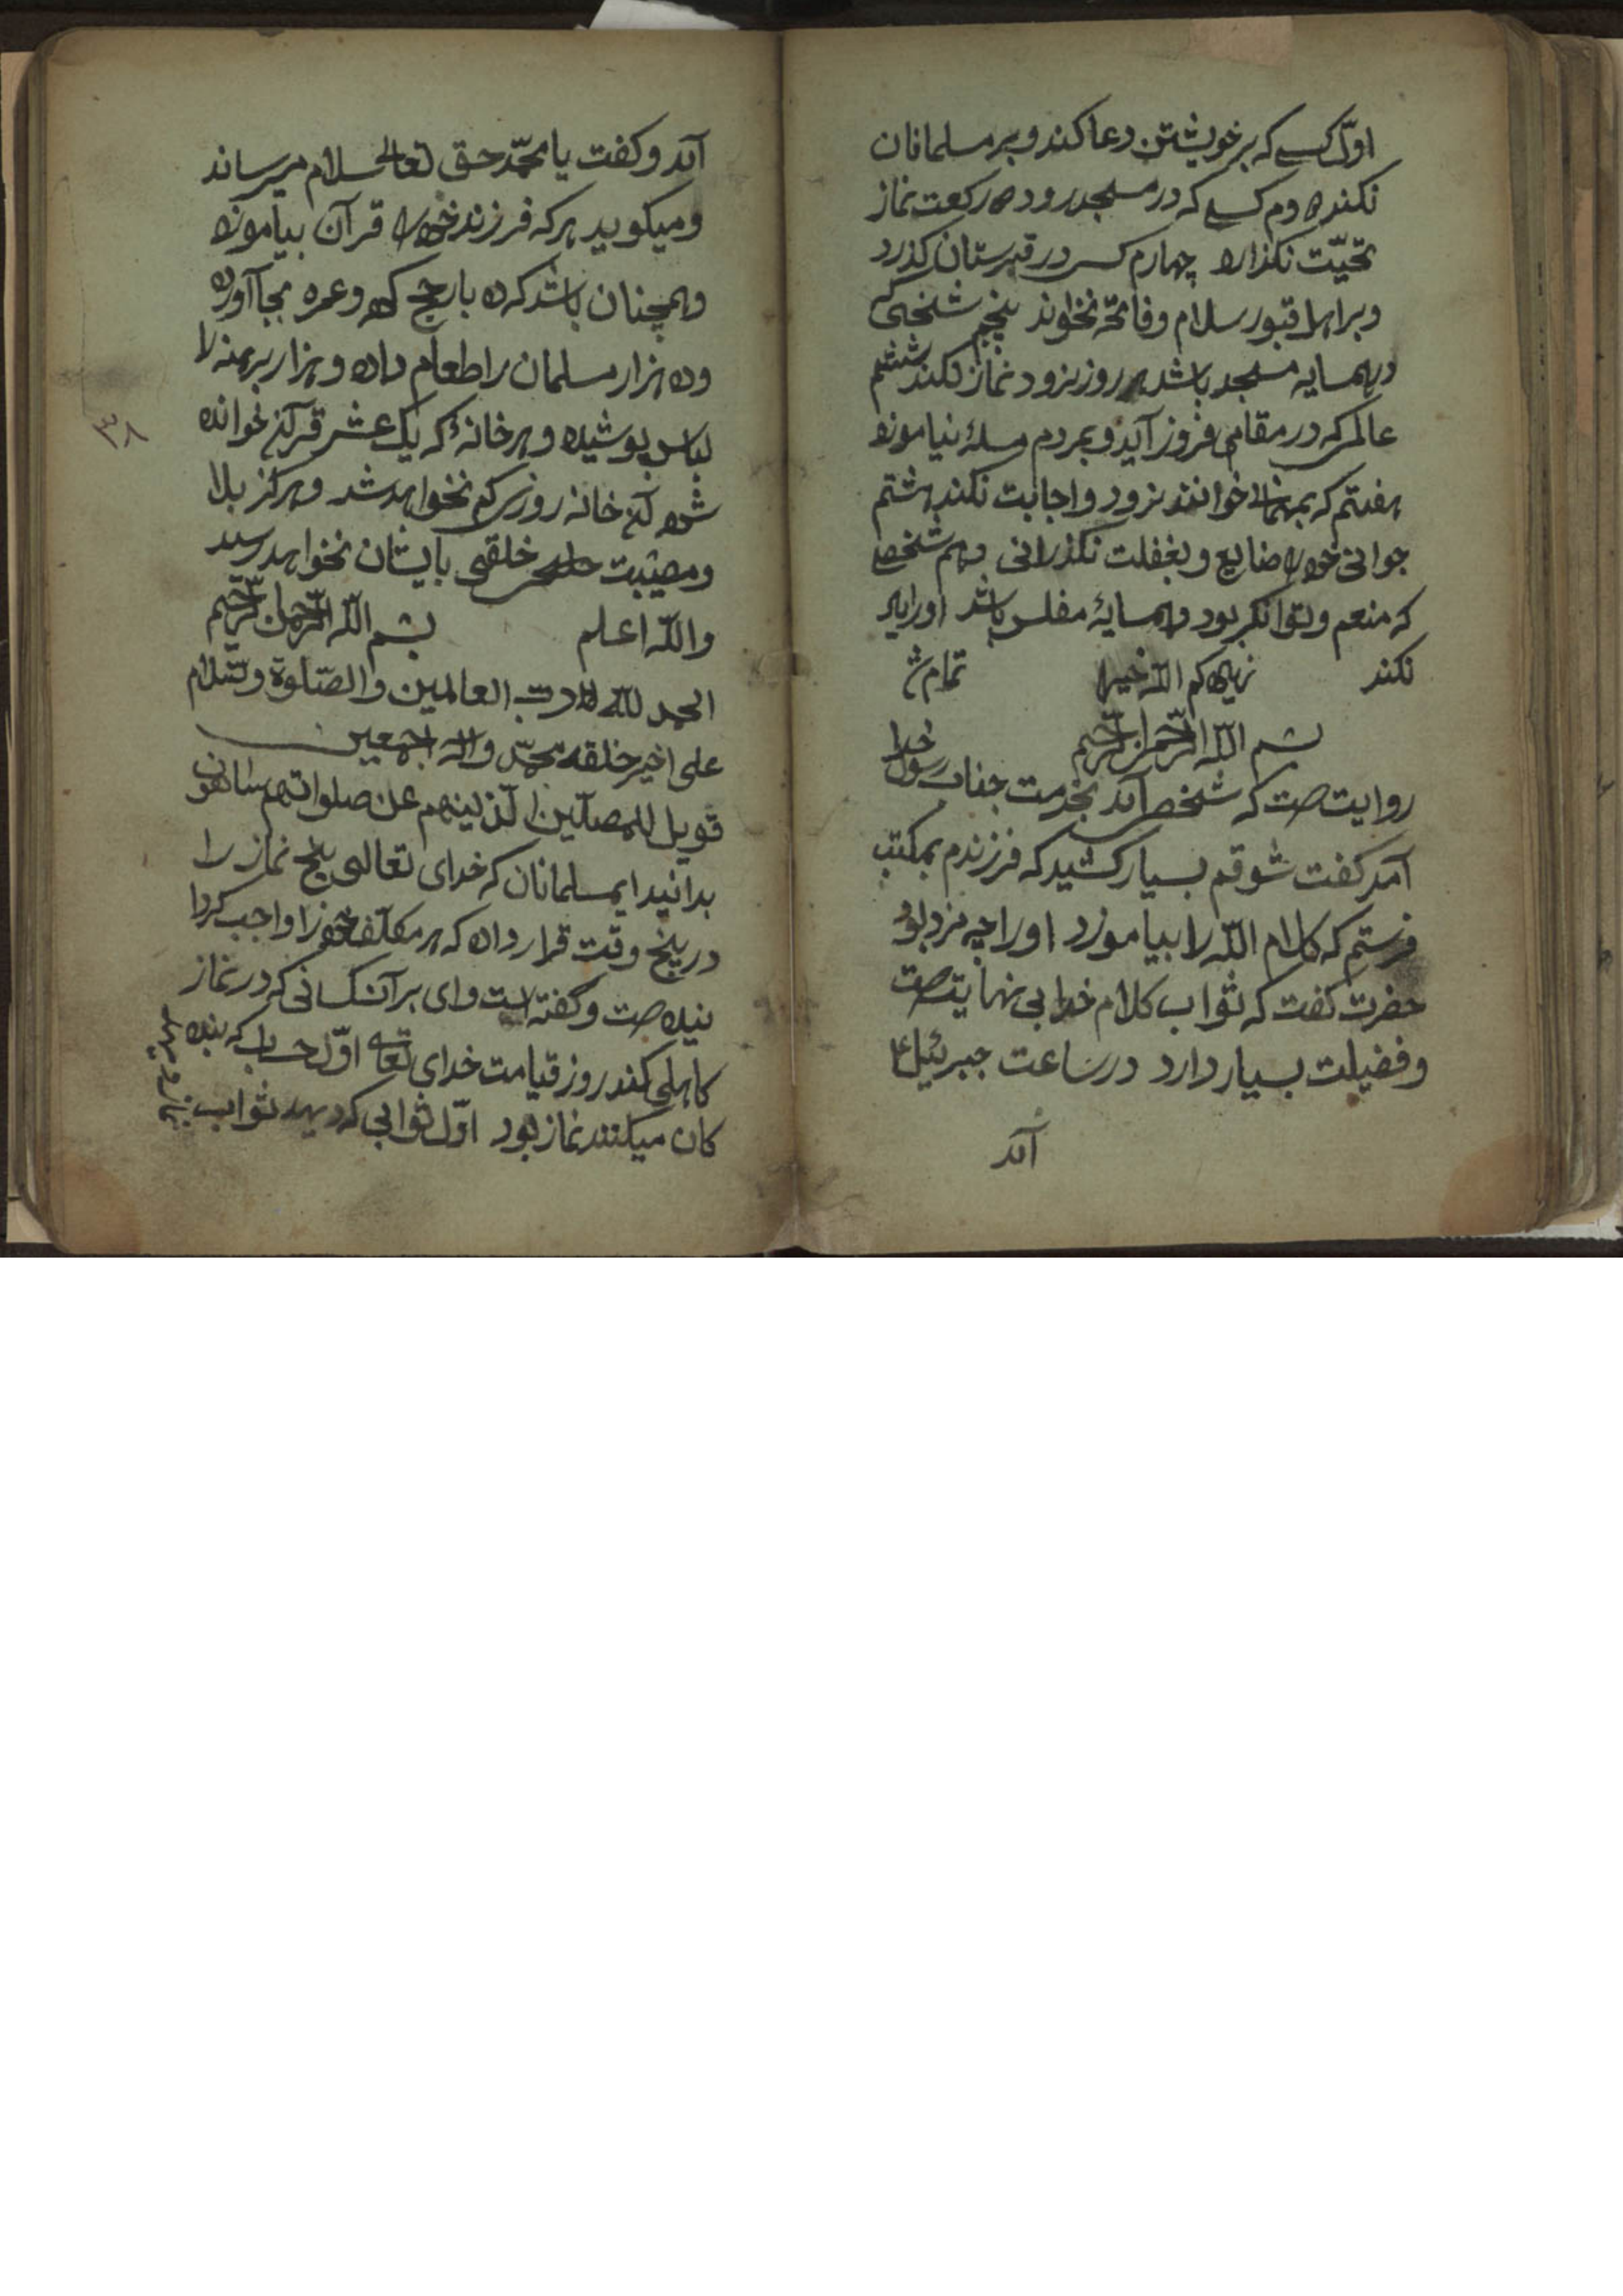 اوّل کسے که بر خویشتن دعا کند و بر مسلمانان
نکند دوم کسے که در مسجد رود رکعت نماز
تحیّت نکذارد چهارم کسے در قبرستان کذرد
و بر اهل قبور سلام و فاتحه نخواند پنجم شخصی که
در همسایه مسجد باشد هر روز نرود نماز نکند ششم
عالمی که در مقامی فروز آید و بمردم مسلۀ نیاموزد
هفتم که بمهمانی خوانند نرود و اجابت نکند هشتم
جوانی خود ضایع و بغفلت نکذرانی دهم شخصے
که منعم و توانکر بود و همسایۀ مفلس باشد اورا
نکند کم اللّه خیرا تمام ش
بسم اللّه الرّحمن الرّحیم
روایت صت که شخصی آمد بخدمت جناب رسول خدا
آمد کفت شوقم بسیار کشید که فرزندم بمکتب
فرستم که کلام اللّه را بیاموزد اورا چه مزد بود
حضرت کفت که ثواب کلام خدا بی نهایت صت
و فضیلت بسیار دارد در ساعت جبرئیل ع
آمد
آمد و کفت یا محمّد حق تعالی سلام میرساند
و میکویید هر که فرزند خود را قرآن بیاموزد
و همچنان باشد که ده بار حج کرد و عمره بجا آورد
و ده هزار مسلمان را طعام داده و هزار برهنه را
لباس پوشیده و هر خانۀ که یک عشر قرآن خوانده
شود آن خانه روزی کم نخواهد شد و هرکز بلا
و مصیبت خلقی بایشان نخواهد رسید
واللّه اعلم بسم اللّه الرّحمن الرّحیم
الحمد للّه ربّ العالمین والصّلوة و سّلام
علی اخیر خلقه محمّد و اله اجمعین
فویل للمصلّین الّذینهم عن صلواتهم ساهون
بدانید ایمسلمانان که خدای تعالی پنج نماز را
در پنج وقت قرار داده که هر مکلّف خود را واجب کردا
نیده صت و کفته است وای بر آنکسانی که در نماز
کاهلی کند روز قیامت خدای تعالی اوّل حساب که بنده
کان میکنند نماز بود اوّل ثوابی که دهد ثواب
۳۸